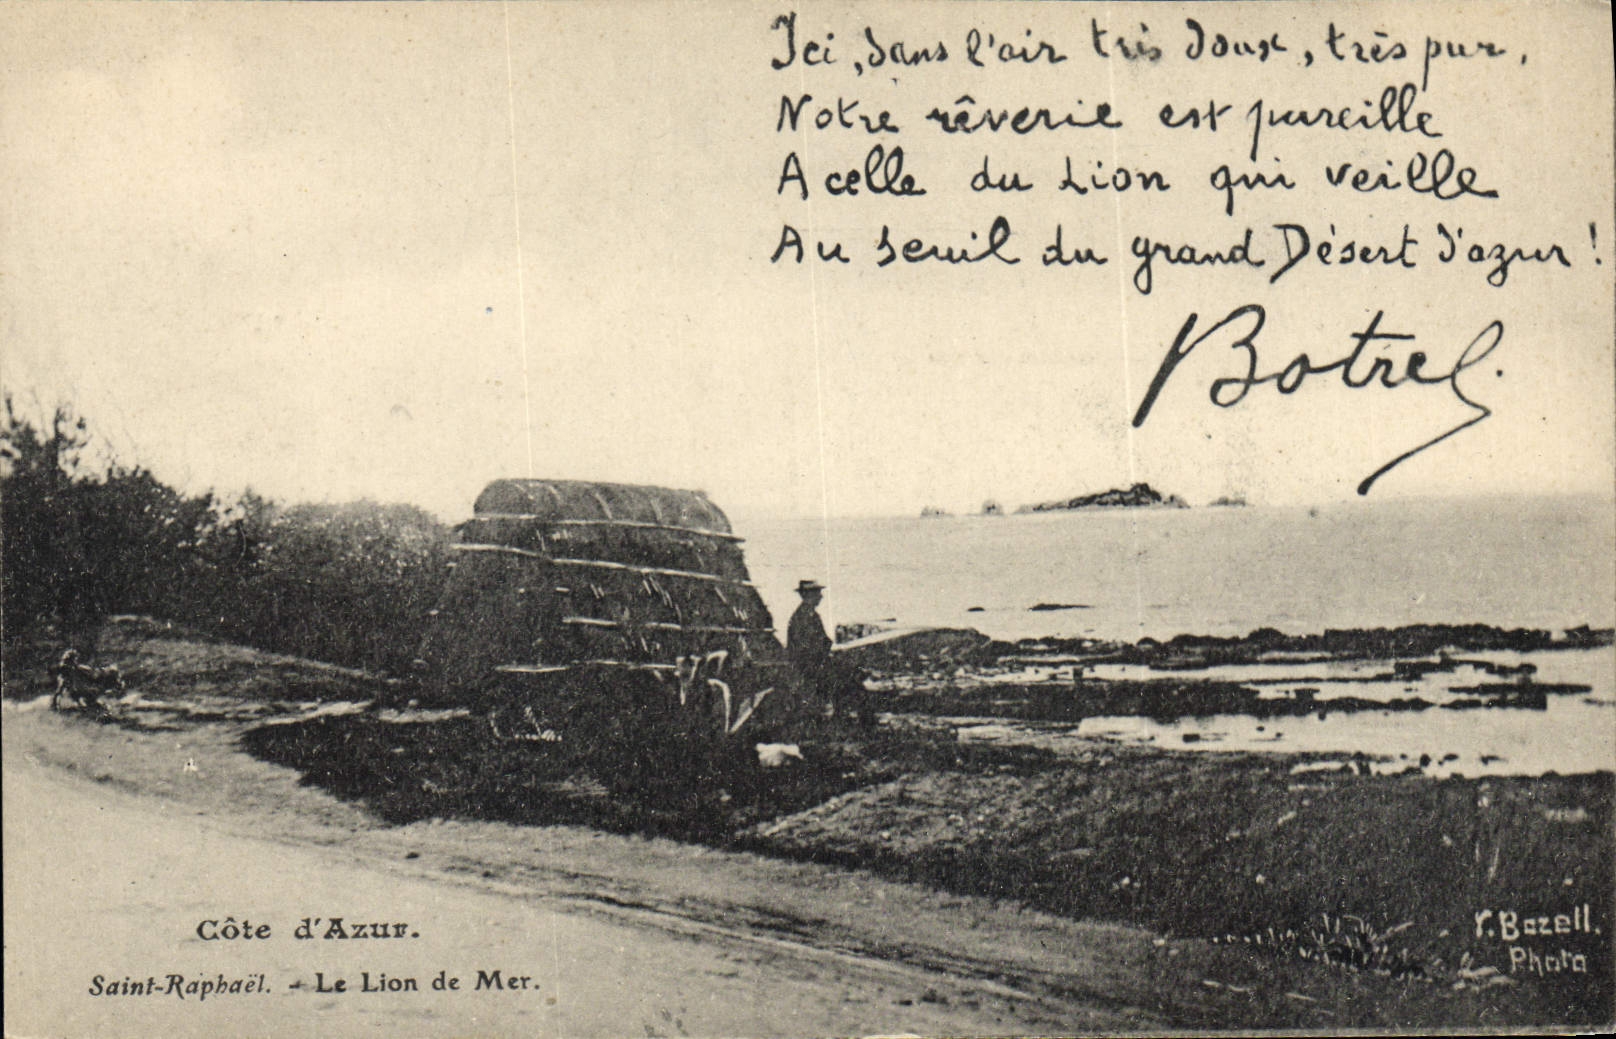 Ici, dans l'air très doux, très pur,
Notre rêverie est pareille
A celle du Lion qui veille
Au seuil du grand Désert d'azur !
Botrel.
Côte d'Azur.
Saint-Raphaël. - Le Lion de Mer.
Y. Bozell.
Photo